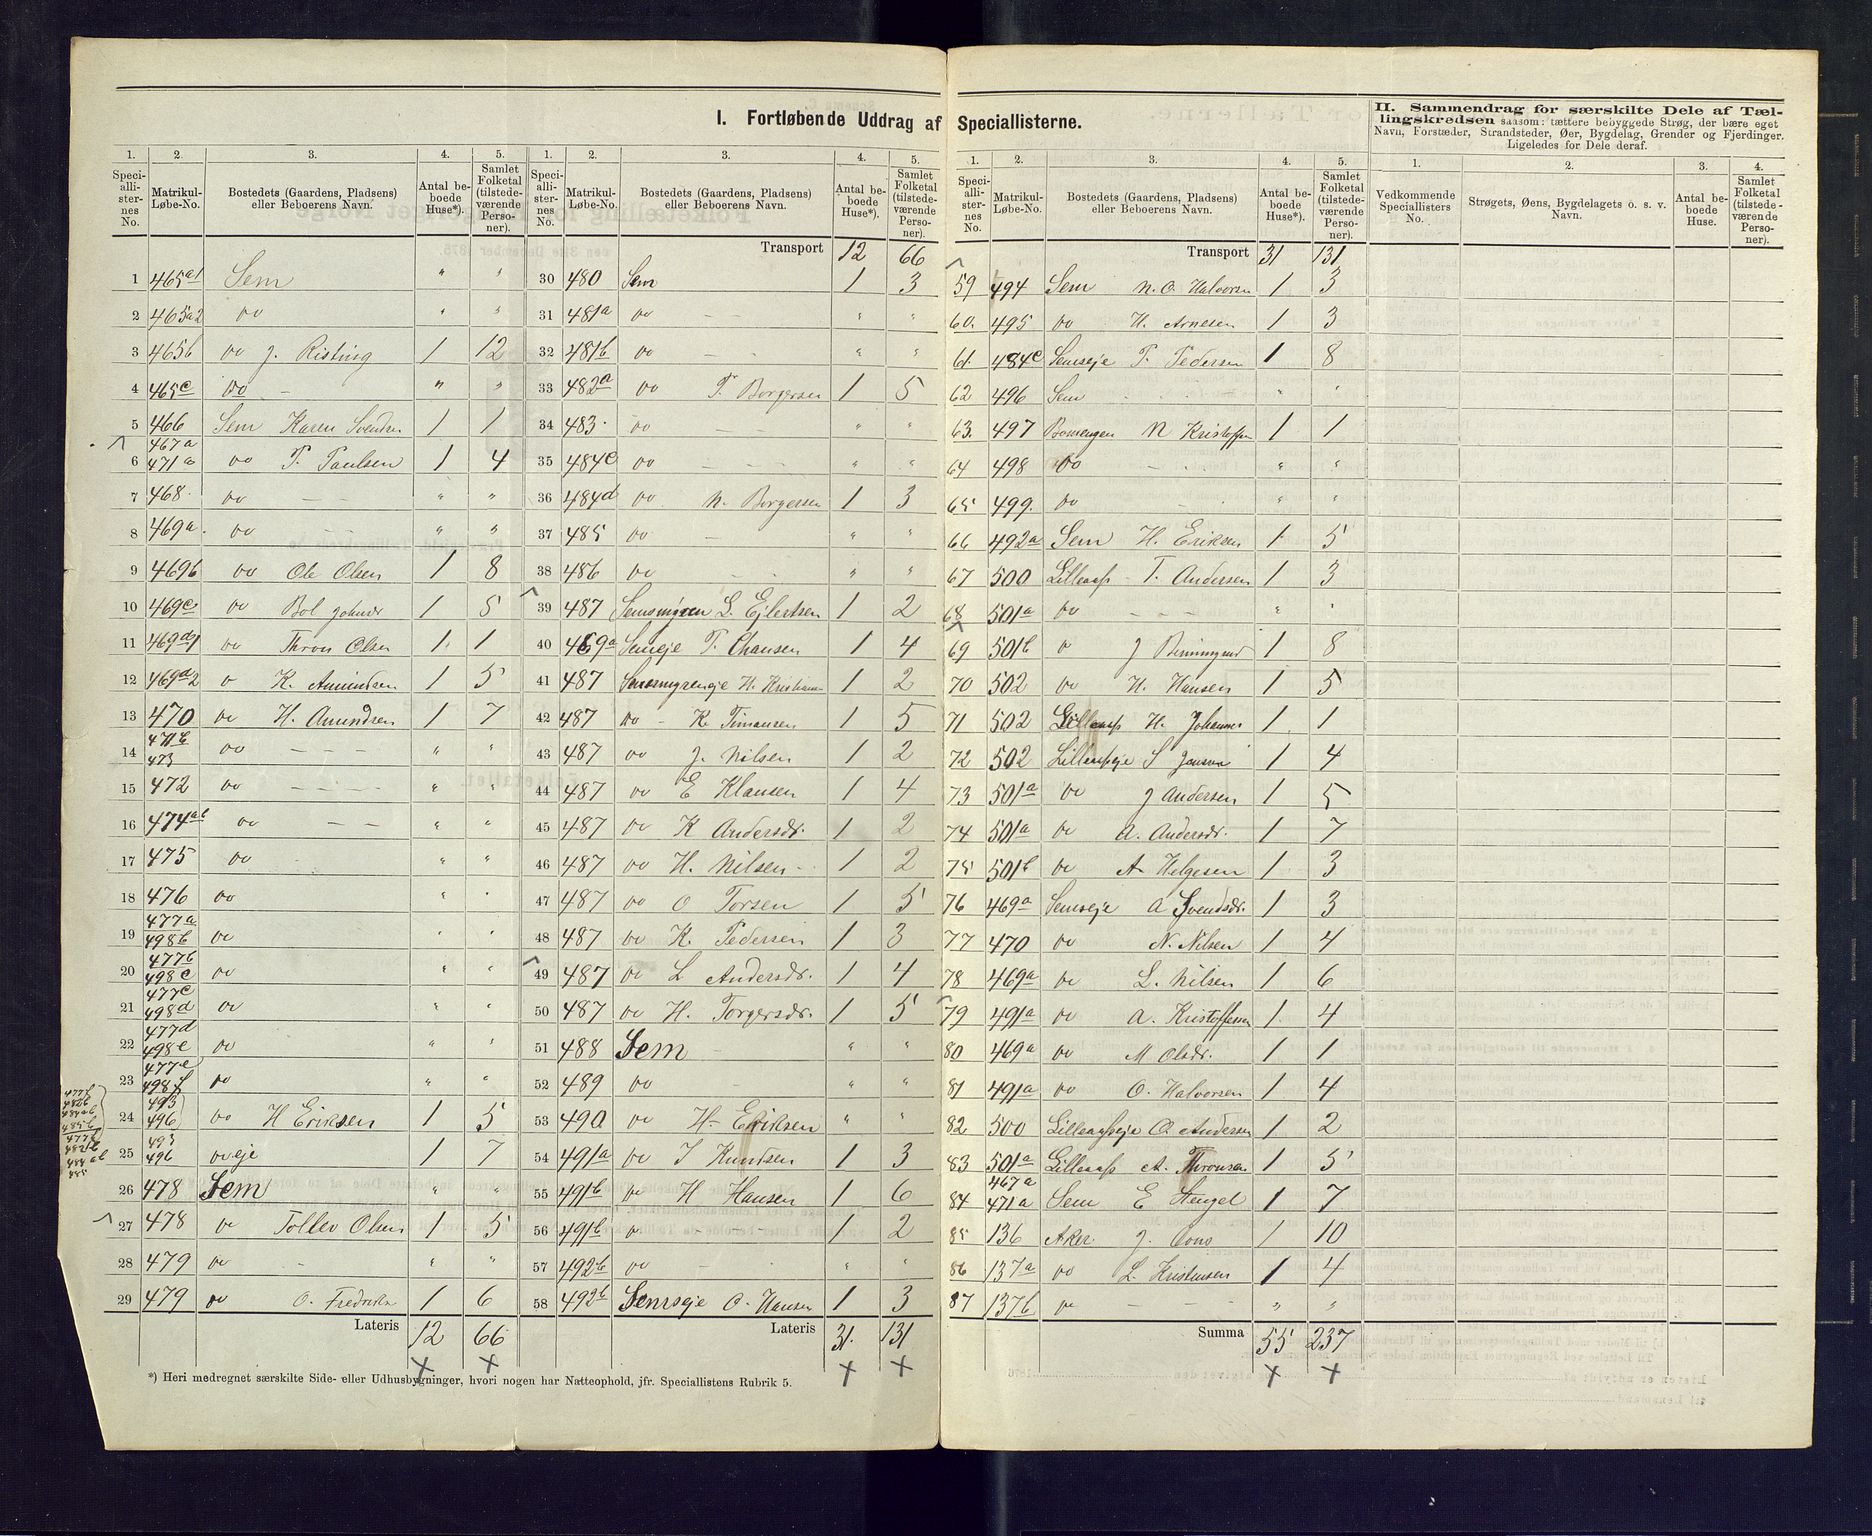 I. Fortløbende Uddrag af Speciallisterne.
II. Sammendrag for særskilte Dele af Tællingskredsen saasom: tættere bebyggede Strøg, der bære eget
Navn, Forstæder, Strandsteder, Øer, Bygdelag, Grender og Fjerdinger.
Ligeledes for Dele deraf.
1. 2. 3. 4. 5.
Speciallisternes No. Matrikul-Løbe-No. Bostedets (Gaardens, Pladsens) eller Beboerens Navn. Antal beboede Huse*). Samlet Folketal (tilstedeværende Personer).
1 465a1 Sem " "
2 465a2 do " "
3 465b do J. Risting 1 12
4 465c do - " "
5 466 Sem Karen Svendsen 1 1
6 467a 471a do T. Paulsen 1 4
7 468 do - - " "
8 469a do - - " "
9 469b do Ole Olsen 1 8
10 469c do Bol Johnsr 1 5
11 469d1 do Thron Olsen 1 1
12 469d2 do K. Amundsen 1 5
13 470 do H. Amundsen 1 7
14 471b 473 do - - - " "
15 472 do - - - - " "
16 474ab do - - " "
17 475 do " "
18 476 do " "
19 477a 498b do " "
20 477b 498c do " "
21 477c 498d do " "
22 477d 498e do " "
23 477e 498f do " "
24 495 496 do H Eriksen 1 5
25 493 496 do eje 1 7
26 478 Sem " "
27 478 do Tollev Olsen 1 5
28 479 do - " "
29 479 do O. Fredriksen 1 6
Lateris 12 66
1. 2. 3. 4. 5.
Speciallisternes No. Matrikul-Løbe-No. Bostedets (Gaardens, Pladsens) eller Beboerens Navn. Antal beboede Huse*). Samlet Folketal (tilstedeværende Personer).
Transport 12 66
30 480 Sem 1 3
31 481a do - - " "
32 481b do - - " "
33 482a do T. Borgersen 1 5
34 483 do - - " "
35 484c do - - - " "
36 484d do N. Borgersen 1 3
37 485 do - " "
38 486 do - - " "
39 487 Semsmyren L. Ejlertsen 1 2
40 469a Semeje T. Chansen 1 4
41 487 Semsmyreneje H. Kristiansen 1 2
42 487 do - K. Timansen 1 5
43 487 do J. Nilsen 1 2
44 487 do E Klausen 1 4
45 487 do K Andersdr. 1 2
46 487 do H. Nilsen - 1 2
47 487 do O Torsen 1 5
48 487 do K. Pedersen 1 3
49 487 do L Andersdr. 1 4
50 487 do H. Torgersdr. 1 5
51 488 Sem - " "
52 489 do - " "
53 490 do H. Eriksen " "
54 491a do J Knudsen 1 3
55 491b do H Hansen 1 6
56 491b do - - - 1 2
57 492b do - - " "
58 492b Semseje O. Hansen 1 3
Lateris 31 131
1. 2. 3. 4. 5.
Speciallisternes No. Matrikul-Løbe-No. Bostedets (Gaardens, Pladsens) eller Beboerens Navn. Antal beboede Huse*). Samlet Folketal (tilstedeværende Personer).
Transport 31 131
59 494 Sem N. O. Halvorsen 1 3
60. 495 do H. Arnesen 1 3
61. 484c Semseje T. Pedersen 1 8
62 496 Sem " "
63. 497 Bomengen N Kristoffsen 1 1
64 498 do - - - " "
65 499. do - " "
66 492a Sem H. Eriksen 1 5
67 500 Lilleaas - T. Andersen 1 3
68 501a do - - - " "
69 501b do J 1 8
70 502 do H. Hansen 1 5
71 502 Lilleaas H. Johannes 1 1
72 502 Lilleaaseje S Jensen 1 4
73 501a do J Andersen 1 5
74 501a do A. Andersdr. 1 7
75 501b do A Helgesen 1 3
76 469a Semseje A Svendsdr. 1 3
77 470 do N. Nilsen 1 4
78 469a do L. Nilsen 1 6
79 491a do A. Kristoffersen 1 4
80 469a do M Olsdr. 1 1
81 491a do O. Halvorsen 1 4
82 500 Lilleaaseje O. Andersen 1 2
83 501a Lilleaas A. Thronsen 1 5
84 467a 471a Sem E Stengel 1 7
85 136 Aker J. 1 10
86 137a do L. Kristensen 1 4
87 137b do - - - " "
Summa 55 237
1. 2. 3. 4.
Vedkommende Speciallisters No. Strøgets, Øens, Bygdelagets o. s. v. Navn. Antal beboede Huse. Samlet Folketal (tilstedeværende Personer).
*) Heri medregnet særskilte Side- eller Udhusbygninger, hvori nogen har Natteophold, jfr. Speciallistens Rubrik 5.